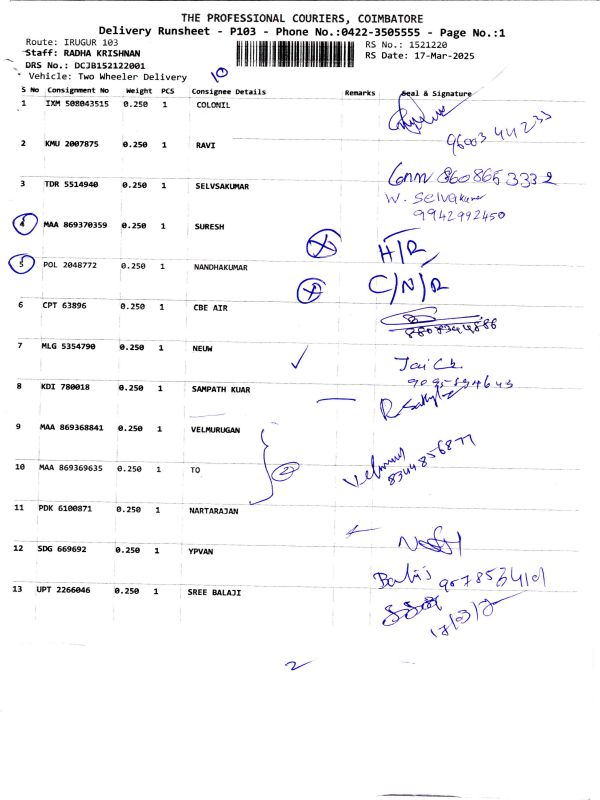 THE PROFESSIONAL COURIERS, COIMBATORE
Delivery Runsheet - P103 - Phone No.:0422-3505555 - Page No.:1
Route: IRUGUR 103 RS No.: 1521220
Staff: RADHA KRISHNAN RS Date: 17-Mar-2025
DRS No.: DCJB152122001
Vehicle: Two Wheeler Delivery 10
S No Consignment No Weight PCS Consignee Details Remarks Seal & Signature
1 IXM 508043515 0.250 1 COLONIL
96003 44233
2 KMU 2007875 0.250 1 RAVI
8608653332
3 TDR 5514940 0.250 1 SELVSAKUMAR W. Selvakumar
9942992450
4 MAA 869370359 0.250 1 SURESH
H/R
5 POL 2048772 0.250 1 NANDHAKUMAR C/N/R
6 CPT 63896 0.250 1 CBE AIR
7 MLG 5354790 0.250 1 NEUW
8 KDI 780018 0.250 1 SAMPATH KUAR
9 MAA 869368841 0.250 1 VELMURUGAN
2
10 MAA 869369635 0.250 1 TO
8344856877
11 PDK 6100871 0.250 1 NARTARAJAN
12 SDG 669692 0.250 1 YPVAN
9578534101
13 UPT 2266046 0.250 1 SREE BALAJI
2